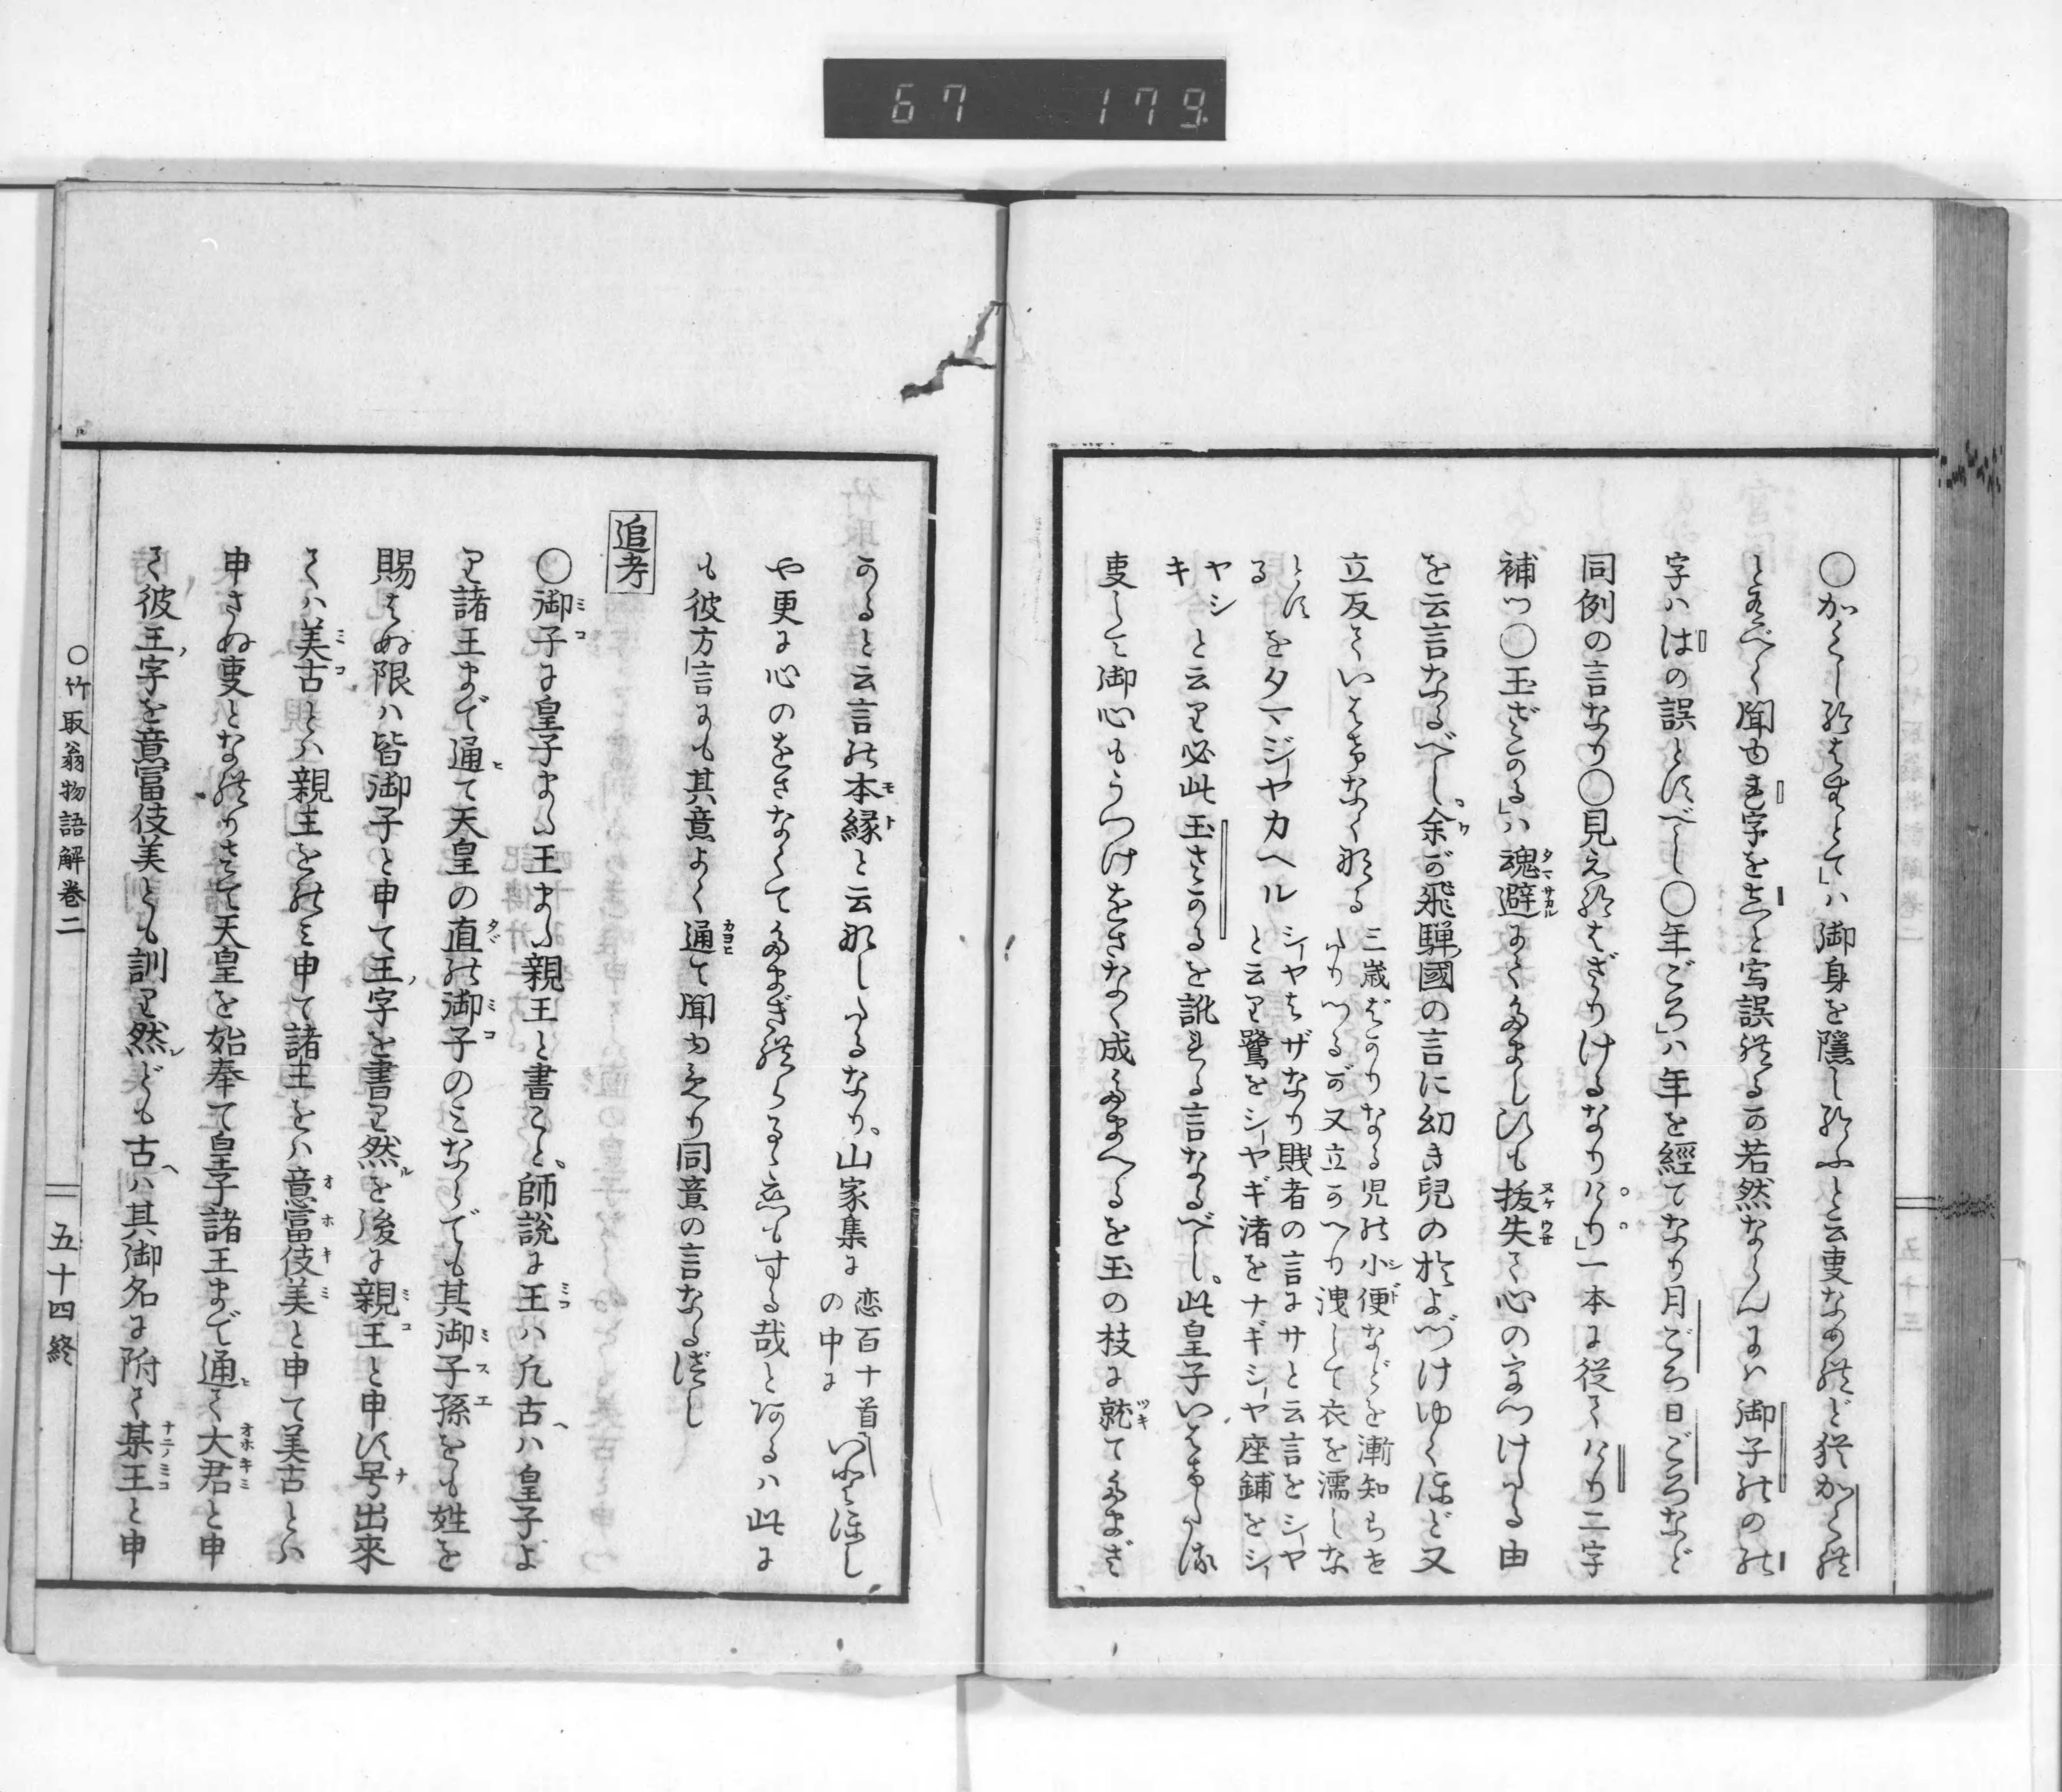 67 179
○かくし給はむとて」ハ御身を隠し給ふと云叓なめれど猶かくれ
とあるべく聞ゆまれ字を志と写誤れるか若然ならんにハ御子たちの
字ハばの誤とすべし○年ごろ」ハ年を經てなり月ごろ日ごろなど
同例の言なり○見え給はざりけるなりけり」一本に従てけり二字
補つ○玉ざかる」ハ魂避にてたましひも抜失て心のうつけたる由
を云言なるべし余が飛騨國の言に幼き兒のおよづけゆくほど又
立反ていはけなくなる
三歳ばかりなる児の小便などを漸知らせ
たりつるが又立かへり洩して衣を濡しな
とす
る
をタマジーヤカヘル
シーヤはザなり賎者の言にサと云言をシーヤ
と云り鷺をシーヤギ渚をナギシーヤ座鋪をシー
ヤシ
キ
と云り必此玉さかるを訛れる言なるべし此皇子いはけたる
叓して御心もうつけをさなく成たまへるを玉の枝に就てたまざ
かると云言の本縁と云なしたるなり山家集に
恋百十首
の中に
いとほし
や更に心のをさなくてたまぎれらるゝ恋もする哉とあるハ此に
も彼方言にも其意よく通て聞ゆえり同意の言なるべし
追考
○御子に皇子また王また親王と書こと師説に王ハ凡古ハ皇子よ
り諸王まで通て天皇の直の御子のミならでも其御子孫をも姓を
賜はぬ限ハ皆御子と申て王字を書り然を後に親王と申す号出來
てハ美古とハ親王をのミ申て諸王をハ意富伎美と申て美古とハ
申さぬ叓となれりさて天皇を始奉て皇子諸王まで通て大君と申
て彼王字を意富伎美とも訓り然ども古ハ其御名に附て某王と申
○竹取翁物語解巻二
五十四終